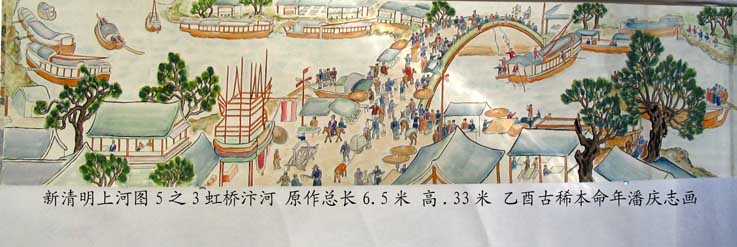 新清明上河图5之3虹桥汴河 原作总长6.5米 高.33米 乙酉古稀本命年潘庆志画